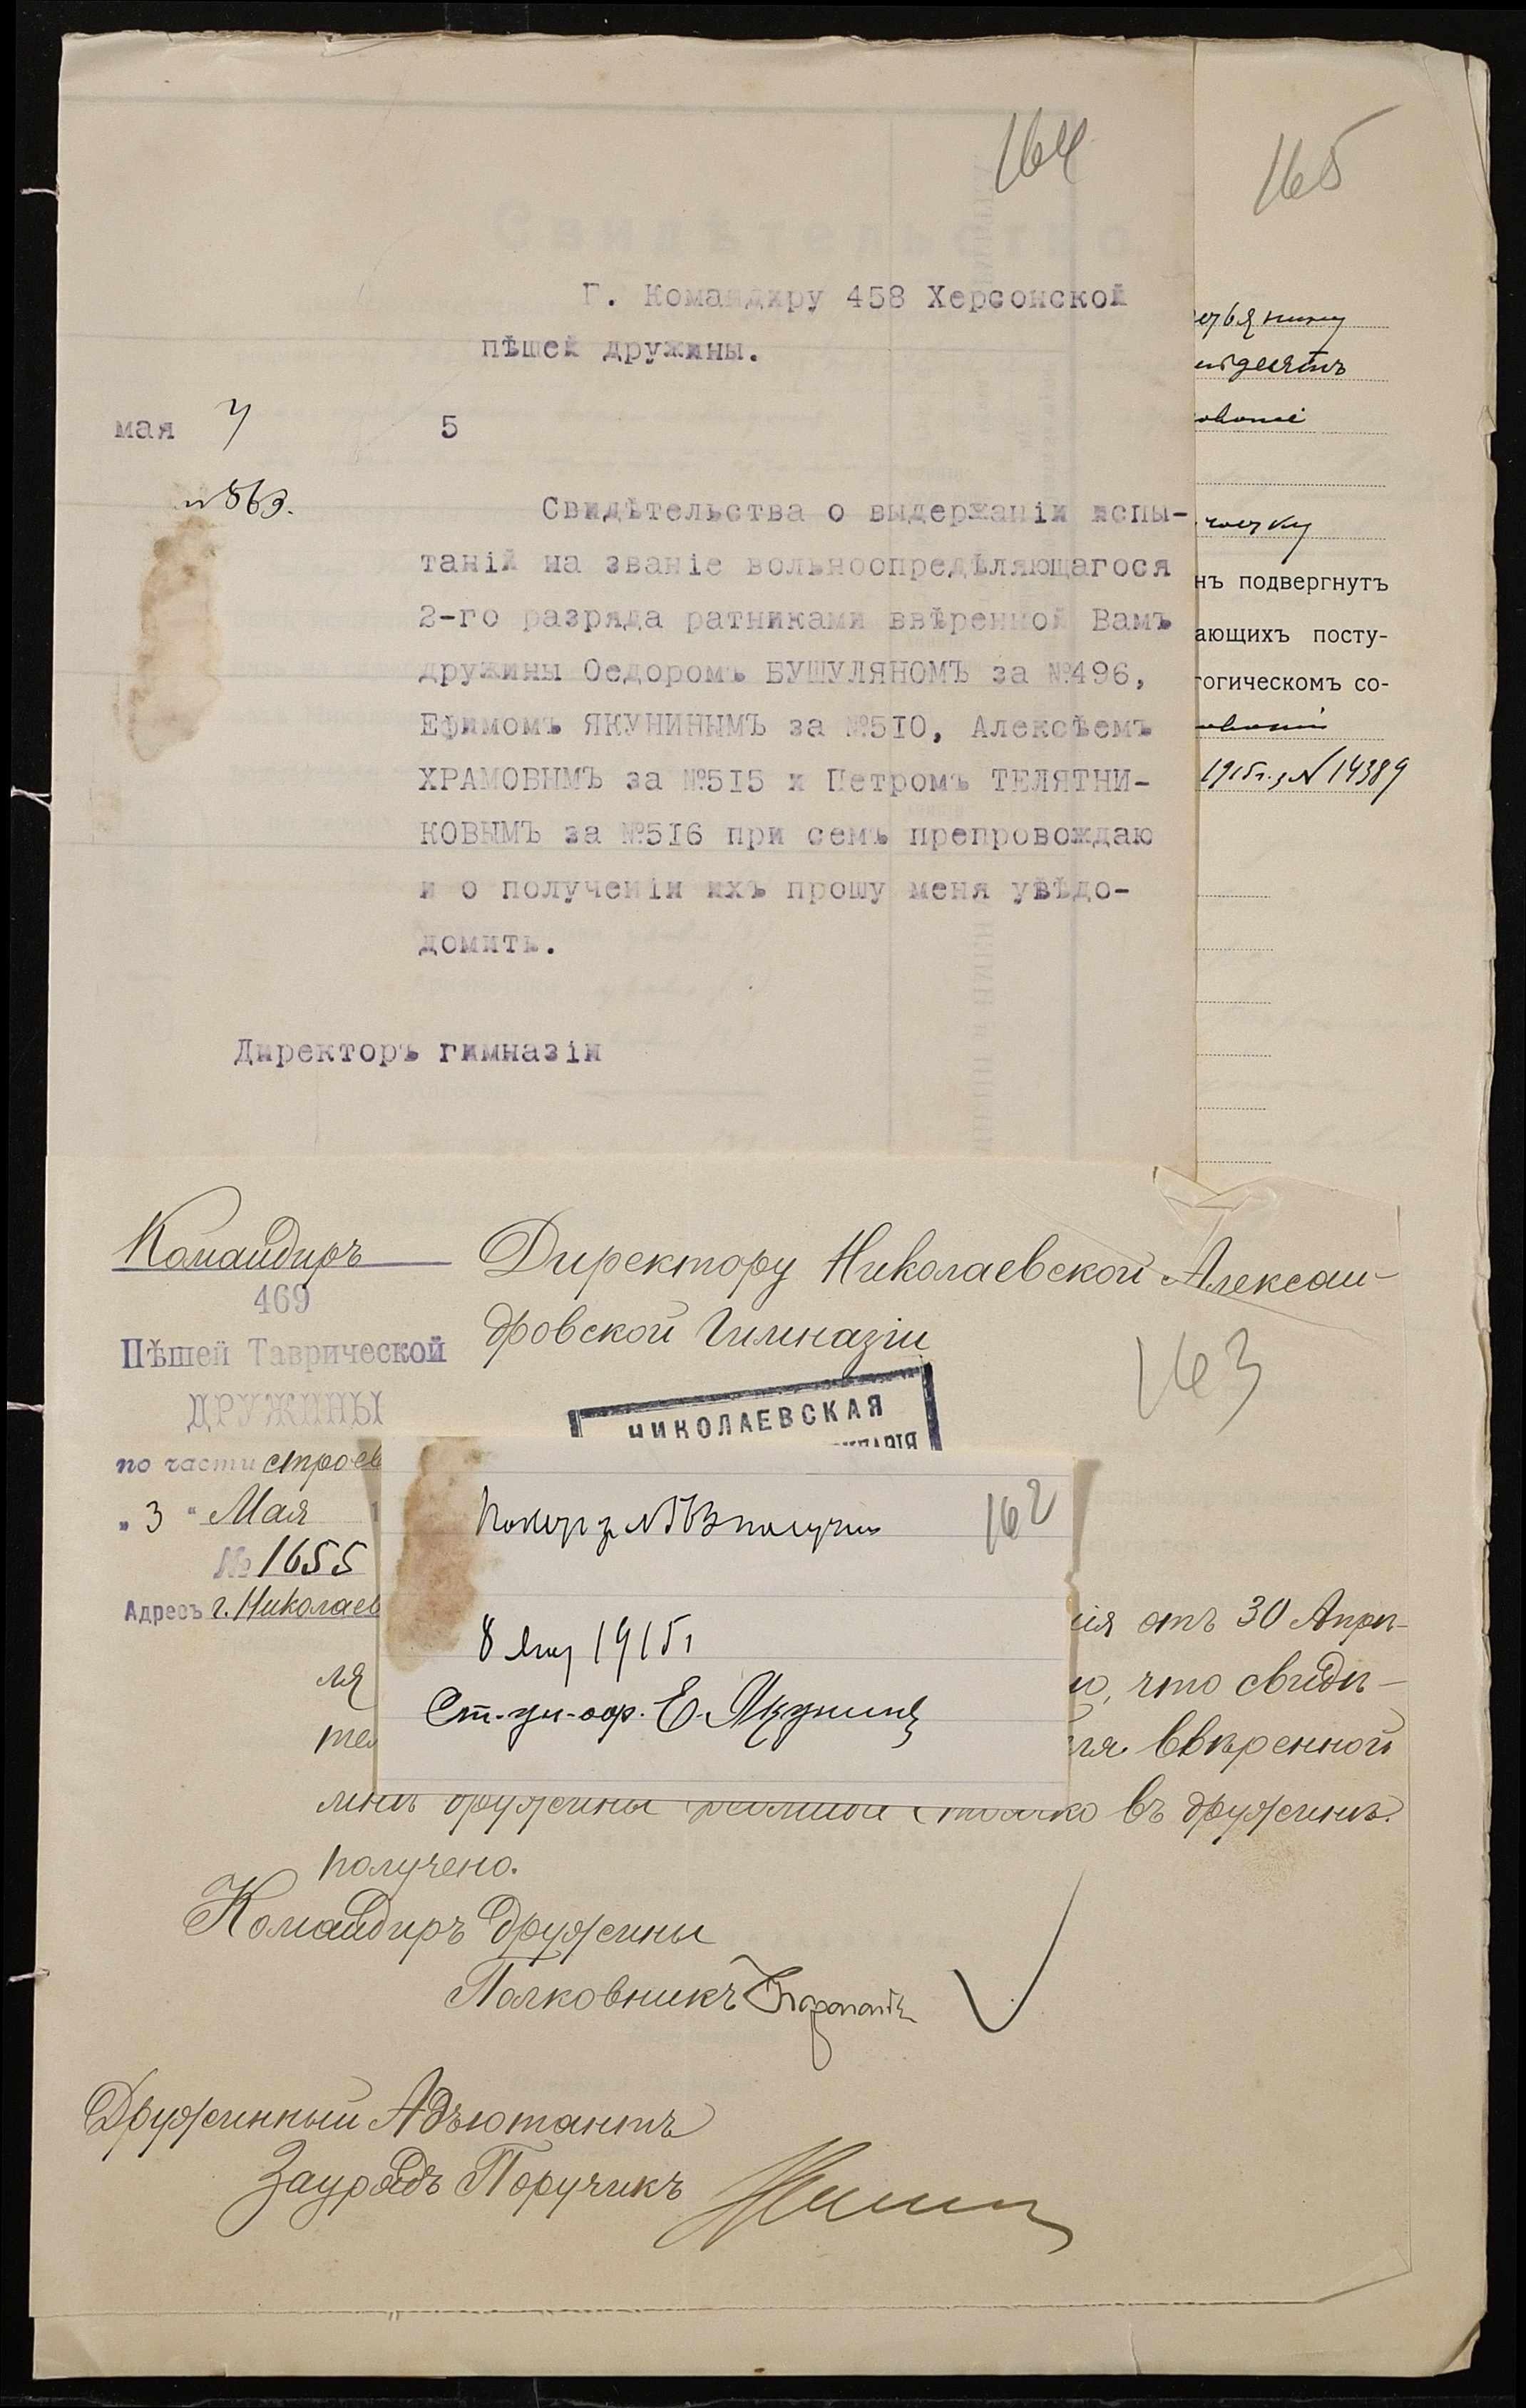 164
165
Свидѣтельство
Г. Командиру 458 Херсонской
пѣшей дружины.
мая 7 5
№ 563.
Свидѣтельства о выдержаніи испы-
таній на званіе вольноопредѣляющагося
2-го разряда ратниками ввѣренной Вамъ
дружины Ѳедоромъ БУШУЛЯНОМЪ за №496,
Ефимомъ ЯКУНИНЫМЪ за №5IO, Алексѣемъ
ХРАМОВЫМЪ за №5I5 и Петромъ ТЕЛЯТНИ-
КОВЫМЪ за №5I6 при семъ препровождаю
и о полученіи ихъ прошу меня увѣдо-
домить.
Директоръ гимназіи
нъ подвергнутъ
ающихъ посту-
гогическомъ со-
1915г., № 14389
Командиръ
469
Пѣшей Таврической
ДРУЖИНЫ
по части строев
„ 3 “ Мая
№ 1655
Адресъ г. Николаев
Директору Николаевской Алексан-
дровской Гимназіи
163
НИКОЛАЕВСКАЯ
162
Пакетъ за № 563 получилъ
8 мая 1915 г
Ст. ун-оф. Е. Якунинъ
ія отъ 30 Апрѣ-
ля о, что свидѣ-
тел ля ввѣренной
мнѣ дружины въ дружинѣ
получено.
Командиръ дружины
Полковникъ
Дружинный Адъютантъ
Заурядъ Поручикъ